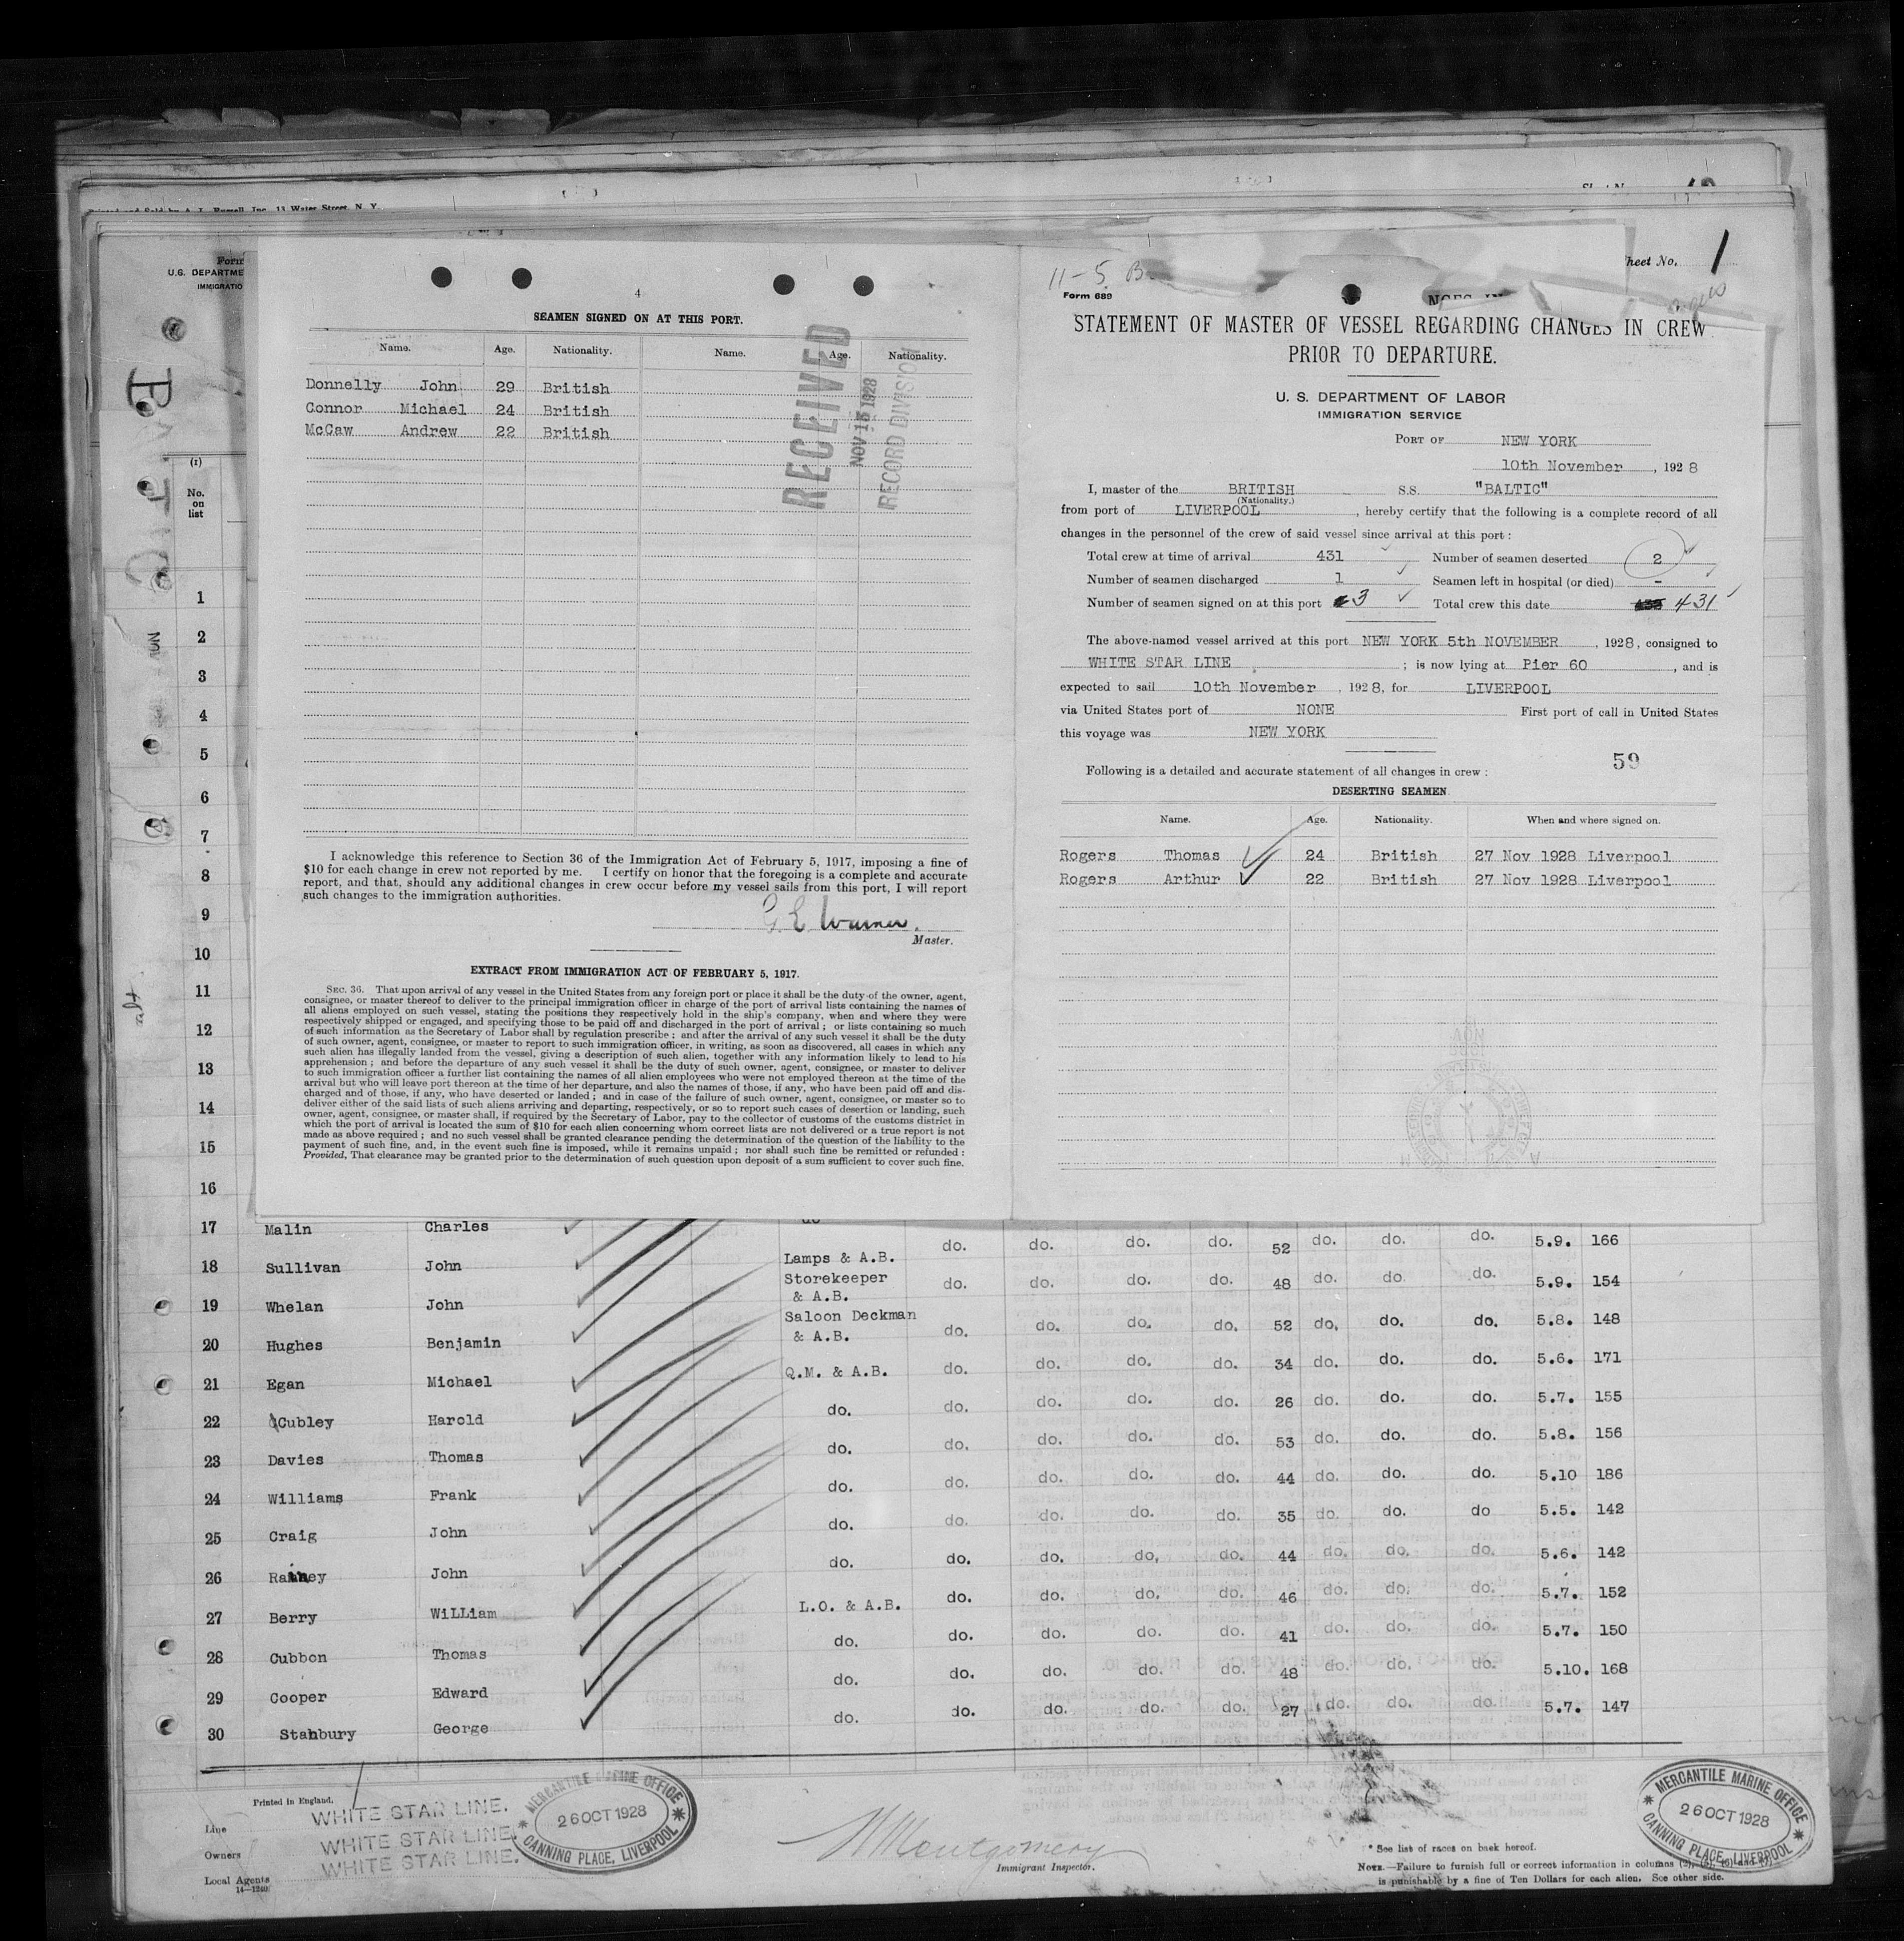 Printed and Sold by A. L. Russell, Inc. 13 Water Street, N. Y.
Form
U.S. DEPARTME
IMMIGRATIO
Sheet No. 1
(1)
No.
on
list
1
2
3
4
5
6
7
8
9
10
11
12
13
14
15
16
4
SEAMEN SIGNED ON AT THIS PORT.
Name. Age. Nationality. Name. Age. Nationality.
Donnelly John 29 British
Connor Michael 24 British
McCaw Andrew 22 British
RECEIVED
NOV 15 1928
RECORD DIVISION
I acknowledge this reference to Section 36 of the Immigration Act of February 5, 1917, imposing a fine of
$10 for each change in crew not reported by me. I certify on honor that the foregoing is a complete and accurate
report, and that, should any additional changes in crew occur before my vessel sails from this port, I will report
such changes to the immigration authorities.
G E Warner.
Master.
EXTRACT FROM IMMIGRATION ACT OF FEBRUARY 5, 1917.
SEC. 36. That upon arrival of any vessel in the United States from any foreign port or place it shall be the duty of the owner, agent,
consignee, or master thereof to deliver to the principal immigration officer in charge of the port of arrival lists containing the names of
all aliens employed on such vessel, stating the positions they respectively hold in the ship's company, when and where they were
respectively shipped or engaged, and specifying those to be paid off and discharged in the port of arrival; or lists containing so much
of such information as the Secretary of Labor shall by regulation prescribe; and after the arrival of any such vessel it shall be the duty
of such owner, agent, consignee, or master to report to such immigration officer, in writing, as soon as discovered, all cases in which any
such alien has illegally landed from the vessel, giving a description of such alien, together with any information likely to lead to his
apprehension; and before the departure of any such vessel it shall be the duty of such owner, agent, consignee, or master to deliver
to such immigration officer a further list containing the names of all alien employees who were not employed thereon at the time of the
arrival but who will leave port thereon at the time of her departure, and also the names of those, if any, who have been paid off and dis-
charged and of those, if any, who have deserted or landed; and in case of the failure of such owner, agent, consignee, or master so to
deliver either of the said lists of such aliens arriving and departing, respectively, or so to report such cases of desertion or landing, such
owner, agent, consignee, or master shall, if required by the Secretary of Labor, pay to the collector of customs of the customs district in
which the port of arrival is located the sum of $10 for each alien concerning whom correct lists are not delivered or a true report is not
made as above required; and no such vessel shall be granted clearance pending the determination of the question of the liability to the
payment of such fine, and, in the event such fine is imposed, while it remains unpaid; nor shall such fine be remitted or refunded:
Provided, That clearance may be granted prior to the determination of such question upon deposit of a sum sufficient to cover such fine.
11-5 B
Form 689
STATEMENT OF MASTER OF VESSEL REGARDING CHANGES IN CREW
PRIOR TO DEPARTURE.
U. S. DEPARTMENT OF LABOR
IMMIGRATION SERVICE
PORT OF NEW YORK
10th November, 1928
I, master of the BRITISH S.S. "BALTIC"
(Nationality.)
from port of LIVERPOOL, hereby certify that the following is a complete record of all
changes in the personnel of the crew of said vessel since arrival at this port:
Total crew at time of arrival 431 Number of seamen deserted 2
Number of seamen discharged 1 Seamen left in hospital (or died) -
Number of seamen signed on at this port 3 Total crew this date 431
The above-named vessel arrived at this port NEW YORK 5th NOVEMBER, 1928, consigned to
WHITE STAR LINE; is now lying at Pier 60, and is
expected to sail 10th November, 1928, for LIVERPOOL
via United States port of NONE First port of call in United States
this voyage was NEW YORK
59
Following is a detailed and accurate statement of all changes in crew:
DESERTING SEAMEN
Name. Age. Nationality. When and where signed on.
Rogers Thomas 24 British 27 Nov 1928 Liverpool
Rogers Arthur 22 British 27 Nov 1928 Liverpool
17 Malin Charles do
18 Sullivan John Lamps & A.B. do. do. do. do. 52 do. do. do. 5.9. 166
19 Whelan John Storekeeper & A.B. do. do. do. do. 48 do. do. do. 5.9. 154
20 Hughes Benjamin Saloon Deckman & A.B. do. do. do. do. 52 do. do. do. 5.8. 148
21 Egan Michael Q.M. & A.B. do. do. do. do. 34 do. do. do. 5.6. 171
22 Cubley Harold do. do. do. do. do. 26 do. do. do. 5.7. 155
23 Davies Thomas do. do. do. do. do. 53 do. do. do. 5.8. 156
24 Williams Frank do. do. do. do. do. 44 do. do. do. 5.10 186
25 Craig John do. do. do. do. do. 35 do. do. do 5.5. 142
26 Rainey John do. do. do. do. do. 44 do. do. do. 5.6. 142
27 Berry WiLLiam L.O. & A.B. do. do. do. do. 46 do. do. do. 5.7. 152
28 Cubbon Thomas do. do. do. do. do. 41 do. do. do. 5.7. 150
29 Cooper Edward do. do. do. do. do. 48 do. do. do. 5.10. 168
30 Stanbury George do. do. do. do. do. 27 do. do. do. 5.7. 147
Printed in England.
Line WHITE STAR LINE.
Owners WHITE STAR LINE.
Local Agents WHITE STAR LINE.
14-1240
MERCANTILE MARINE OFFICE
26 OCT 1928
CANNING PLACE, LIVERPOOL
W Montgomery
Immigrant Inspector.
MERCANTILE MARINE OFFICE
26 OCT 1928
CANNING PLACE, LIVERPOOL
* See list of races on back hereof.
NOTE.—Failure to furnish full or correct information in columns (2), (5), (6) and (7)
is punishable by a fine of Ten Dollars for each alien. See other side.